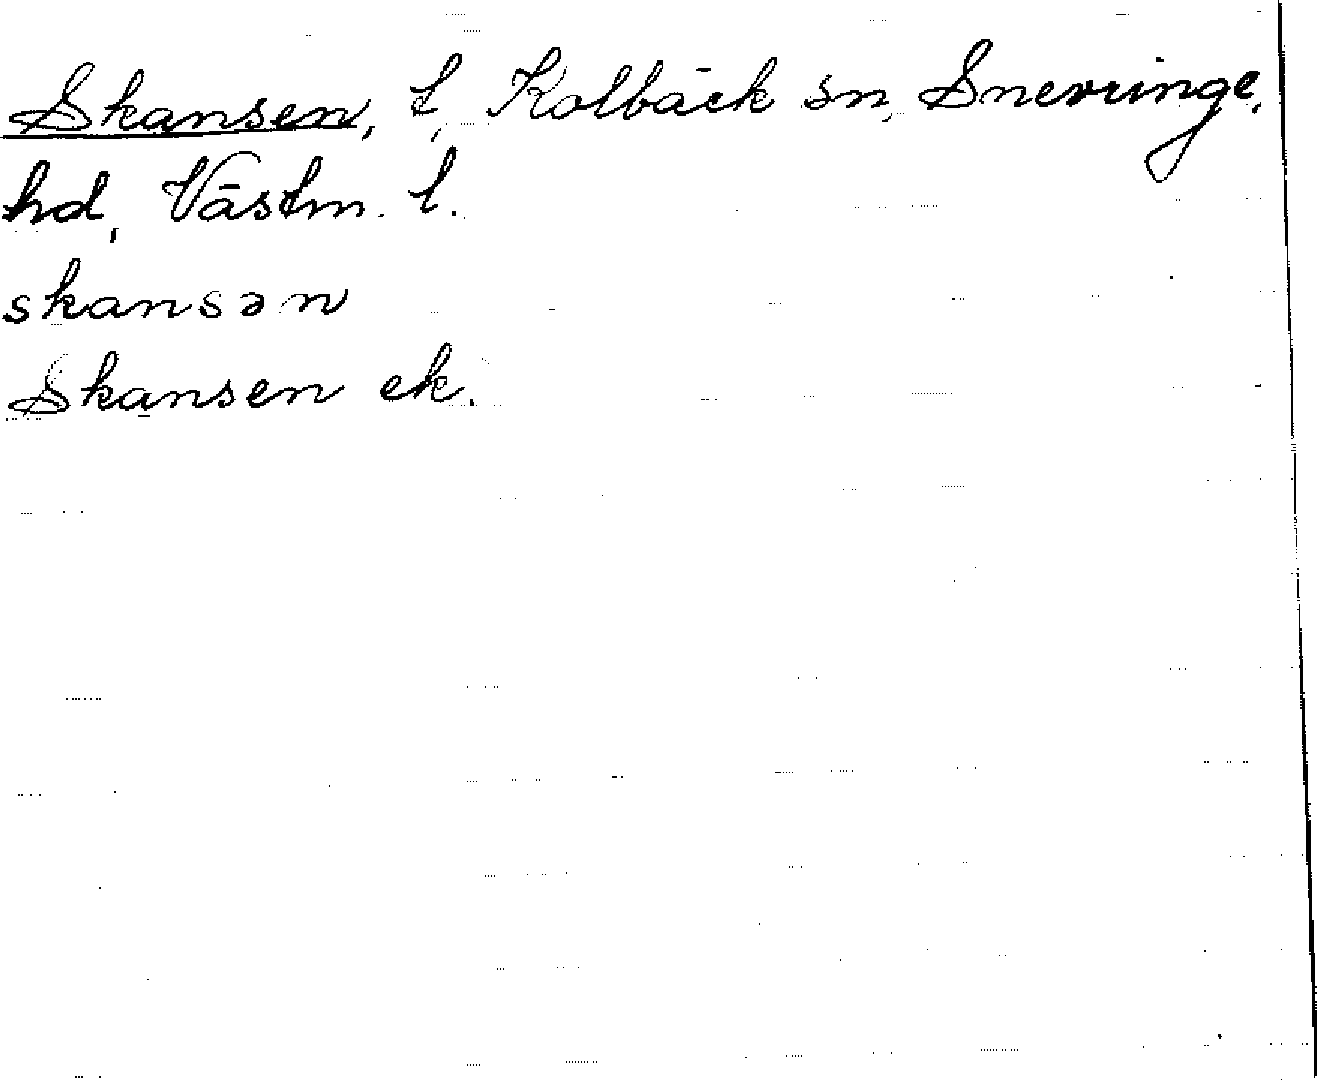 Skansen, t, Kolbäck sn, Snevringe,
hd, Västm. l.
skansən
Skansen ek.